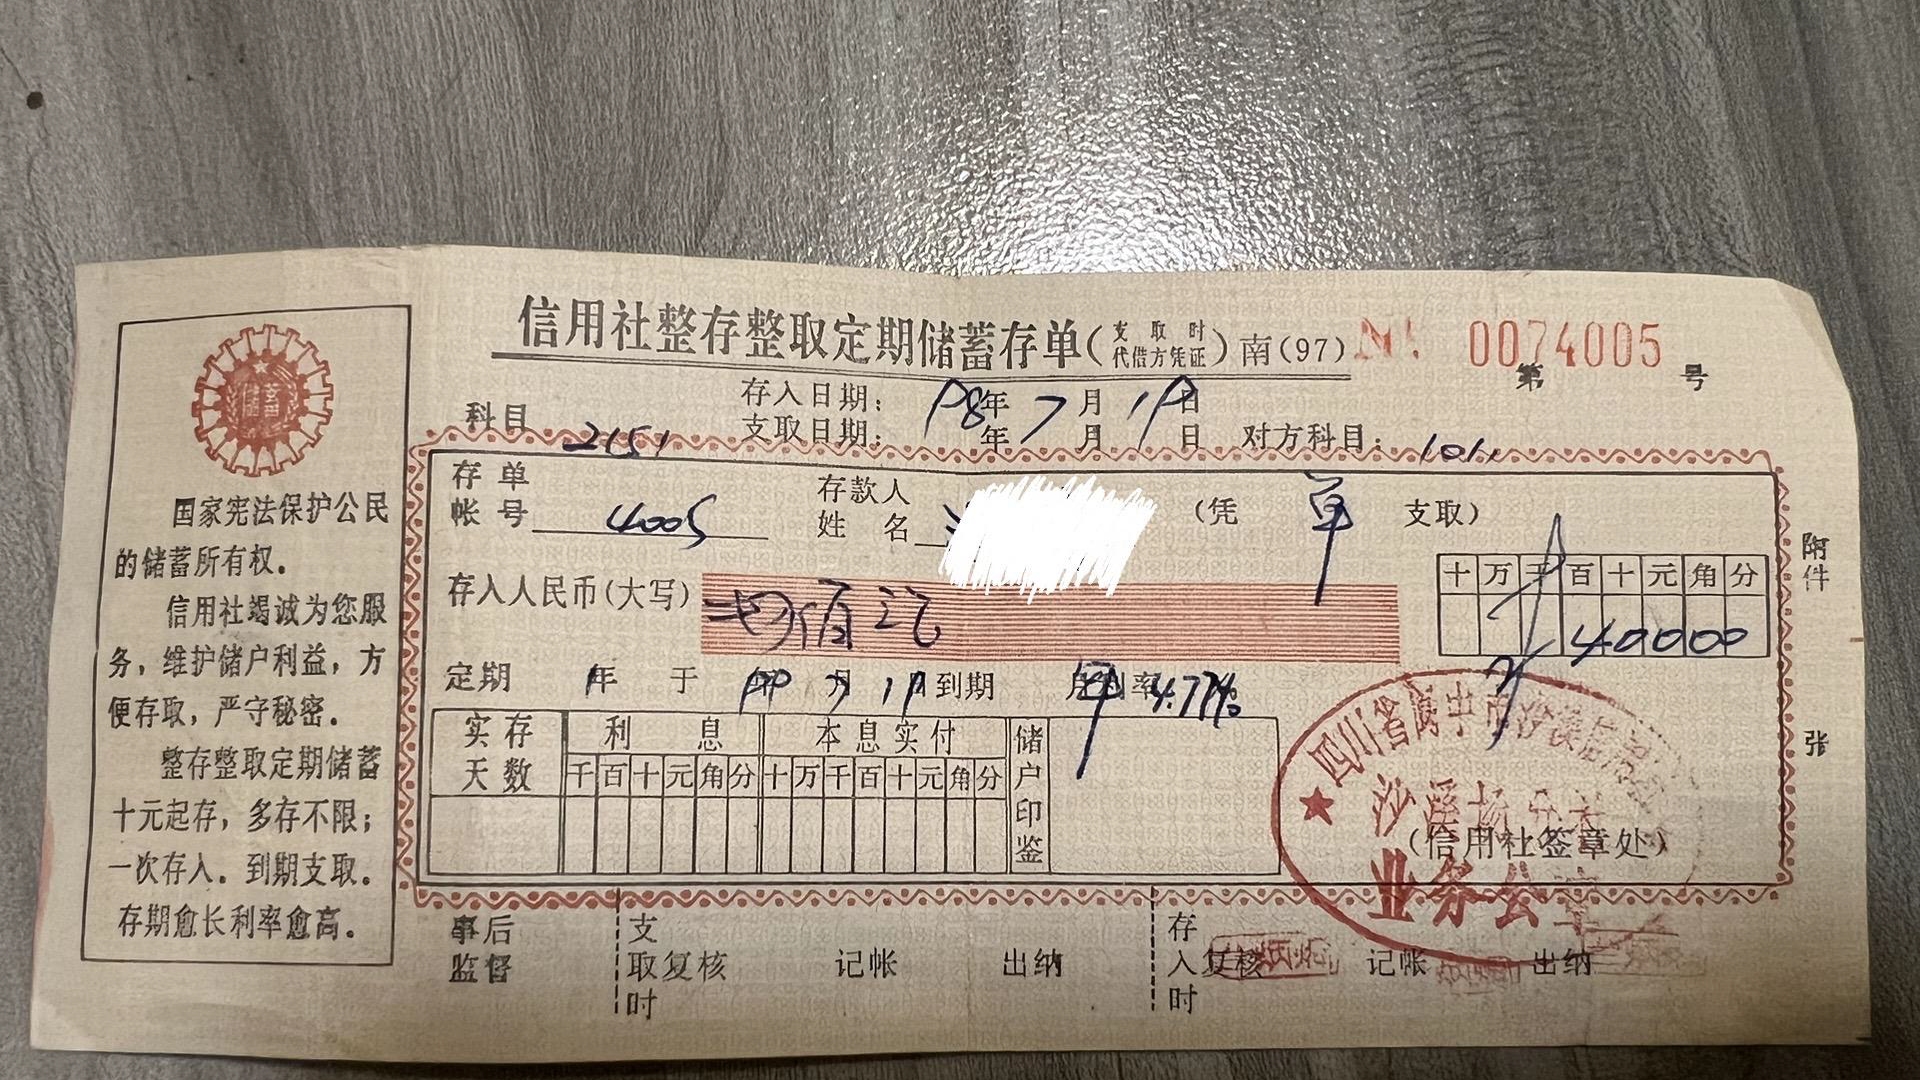 信用社整存整取定期储蓄存单(支取时代借方凭证)南(97) № 0074005
第 号
存入日期: 98年7月19日
支取日期: 年 月 日 对方科目: 101
科目 2151
国家宪法保护公民
的储蓄所有权.
信用社竭诚为您服
务,维护储户利益,方
便存取,严守秘密.
整存整取定期储蓄
十元起存,多存不限;
一次存入.到期支取.
存期愈长利率愈高.
存单
帐号 4005
存款人
姓名
(凭 单 支取)
存入人民币(大写) 肆佰元
十万千百十元角分
¥40000
定期 1年 于 99年7月19日到期 月利率 4.77%
实存
天数
利息
千百十元角分
本息实付
十万千百十元角分
储户印鉴
四川省阆中市沙溪信用
沙溪场分社
业务公章
(信用社签章处)
附件
张
事后
监督
支取时
复核 记帐 出纳
存入时
复核 记帐 出纳